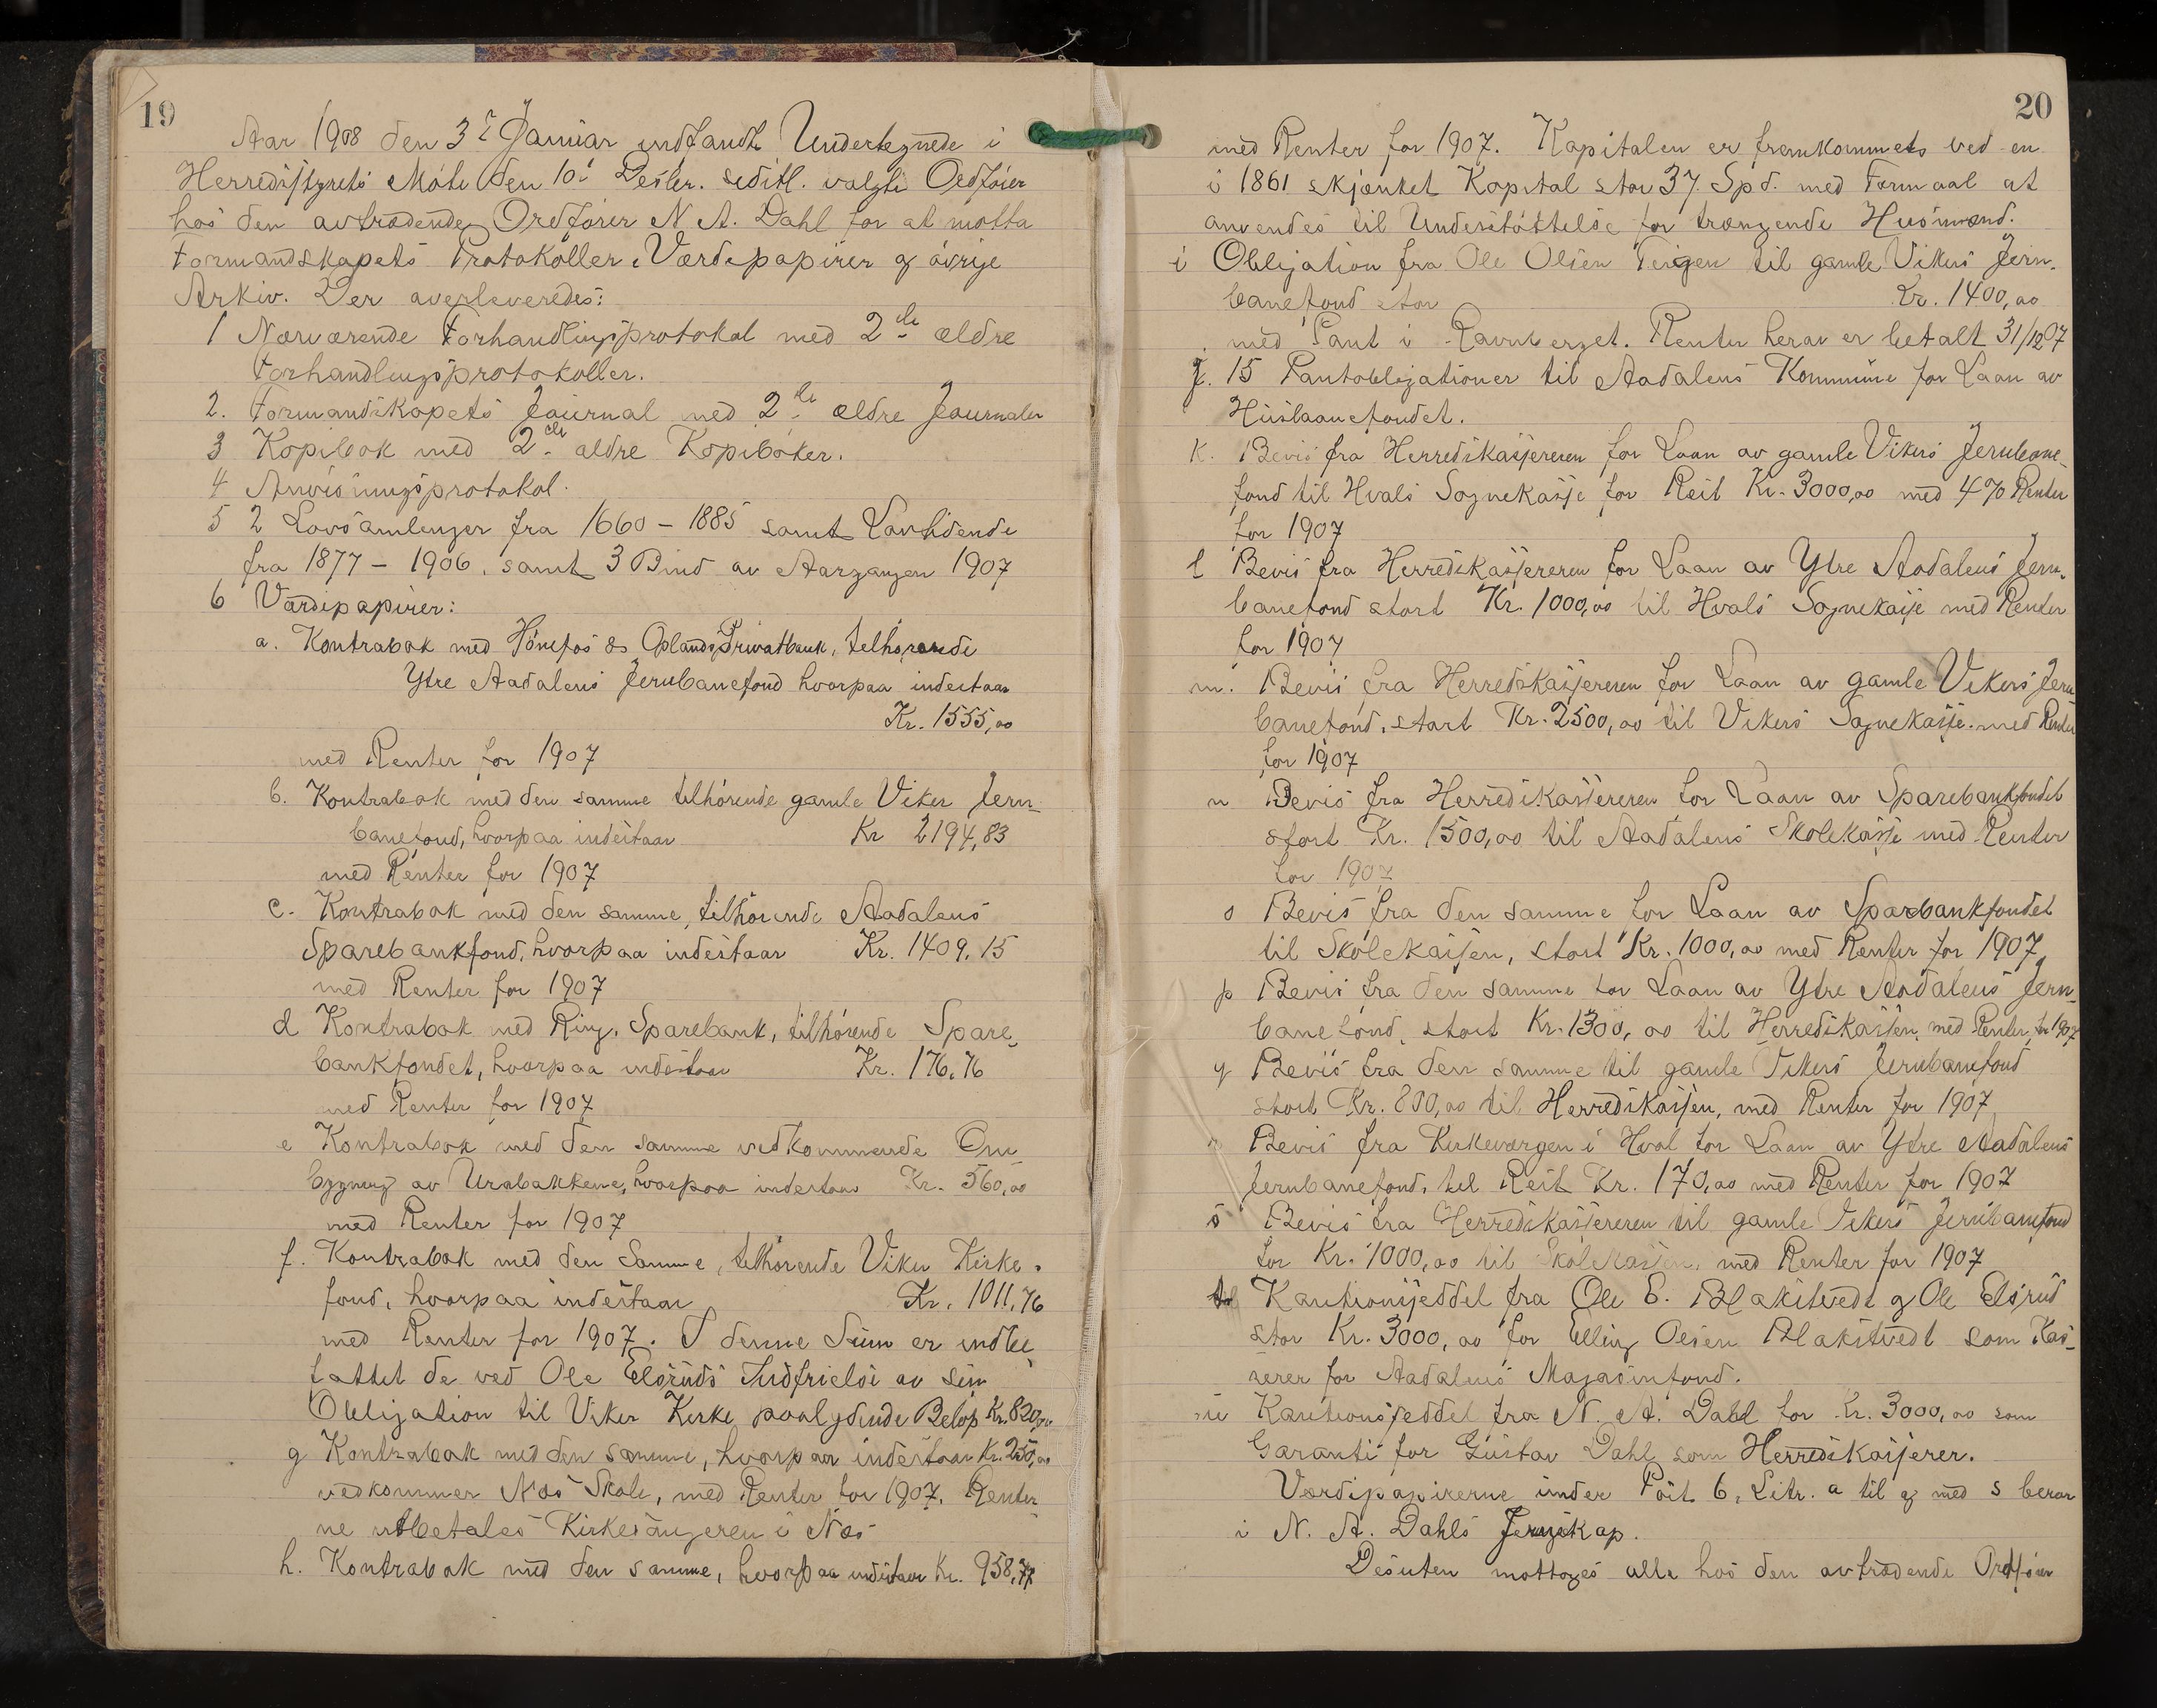 19
Aar 1908 den 3. Januar indfandt Undertegnede i
Herredsstyrets Møte den 10. Desbr. sidstl. valgte Ordfører
hos den avtrædende Ordfører N. A. Dahl for at motta
Formandskapets Protokoller, Værdipapirer og øvrige
Arkiv. Der overleveredes:
1 Nærværende Forhandlingsprotokol med 2de ældre
Forhandlingsprotokoller.
2. Formandskapets Journal med 2de ældre Journaler
3 Kopibok med 2de ældre Kopibøker.
4 Anvisningsprotokol.
5 2 Lovsamlinger fra 1660 – 1885 samt Lovtidende
fra 1877 – 1906, samt 3 Bind av Aargangen 1907
6 Værdipapirer:
a. Kontrabok med Hønefos & Oplands Privatbank, tilhørende
Ytre Aadalens Jernbanefond hvorpaa indestaar
Kr. 1555,00
med Renter for 1907
b. Kontrabok med den samme tilhørende gamle Viker Jern-
banefond, hvorpaa indestaar Kr 2194,83
med Renter for 1907
c. Kontrabok med den samme, tilhørende Aadalens
Sparebankfond, hvorpaa indestaar Kr. 1409,15
med Renter for 1907
d Kontrabok med Ring. Sparebank, tilhørende Spare-
bankfondet, hvorpaa indestaar Kr. 176,76
med Renter for 1907
e Kontrabok med den samme vedkommende Om-
bygning av Urabakkene, hvorpaa indestaar Kr. 560,00
med Renter for 1907
f. Kontrabok med den samme, tilhørende Viker Kirke-
fond, hvorpaa indestaar Kr. 1011,76
med Renter for 1907. I denne Sum er indbe
fattet de ved Ole Elsruds Indfrielse av sin
Obligation til Viker Kirke paalydende Beløp Kr. 820,00
g Kontrabok med den samme, hvorpaa indestaar Kr. 250,00
vedkommer Næs Skole, med Renter for 1907. Renter
ne utbetales Kirkesangeren i Næs
h. Kontrabok med den samme, hvorpaa indestaar Kr. 958,77
20
med Renter for 1907. Kapitalen er fremkommet ved en
i 1861 skjænket Kapital stor 37 Spd. med Formaal at
anvendes til Understøttelse for trængende Husmænd.
i Obligation fra Ole Olsen Teigen til gamle Vikers Jern-
banefond stor Kr. 1400,00
med Pant i Ravnberget. Renter herav er betalt 31/12 07
j. 15 Pantobligationer til Aadalens Kommune for Laan av
Huslaanefondet.
k. Bevis fra Herredskassereren for Laan av gamle Vikers Jernbane-
fond til Hvals Sognekasse for Rest Kr. 3000,00 med 4% Renter
for 1907
l Bevis fra Herredskassereren for Laan av Ytre Aadalens Jern-
banefond stort Kr. 1000,00 til Hvals Sognekasse med Renter
for 1907
m. Bevis fra Herredskassereren for Laan av gamle Vikers Jern
banefond, stort Kr. 2500,00 til Vikers Sognekasse med Renter
for 1907
n Bevis fra Herredskassereren for Laan av Sparebankfondet
stort Kr. 1500,00 til Aadalens Skolekasse med Renter
for 1907
o Bevis fra den samme for Laan av Sparebankfondet
til Skolekassen, stort Kr. 1000,00 med Renter for 1907
p Bevis fra den samme for Laan av Ytre Aadalens Jern-
banefond, stort Kr. 1300,00 til Herredskassen, med Renter for 1907
q Bevis fra den samme til gamle Vikers Jernbanefond
stort Kr. 800,00 til Herredskassen, med Renter for 1907
r Bevis fra Kirkeværgen i Hval for Laan av Ytre Aadalens
Jernbanefond, til Rest Kr. 170,00 med Renter for 1907
s Bevis fra Herredskassereren til gamle Vikers Jernbanefond
for Kr. 1000,00 til Skolekassen, med Renter for 1907
t Kautionsseddel fra Ole E. Blakstvedt og Ole Elsrud
stor Kr. 3000,00 for Elling Olsen Blakstvedt som Kas-
serer for Aadalens Magasinfond.
u Kautionsseddel fra N. A. Dahl for Kr. 3000,00 som
Garanti for Gustav Dahl som Herredskasserer.
Værdipapirerne under Post 6, Litr. a til og med s beror
i N. A. Dahls Jernskap.
Desuten mottoges alle hos den avtrædende Ordfører